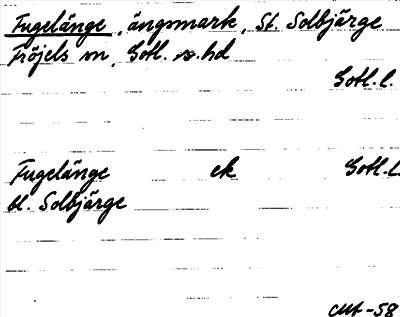 Fugelänge, ängsmark, St. Solbjärge
Fröjels sn, Gotl. s. hd
Gotl. l.
Fugelänge ek Gotl. l.
bl. Solbjärge
-58